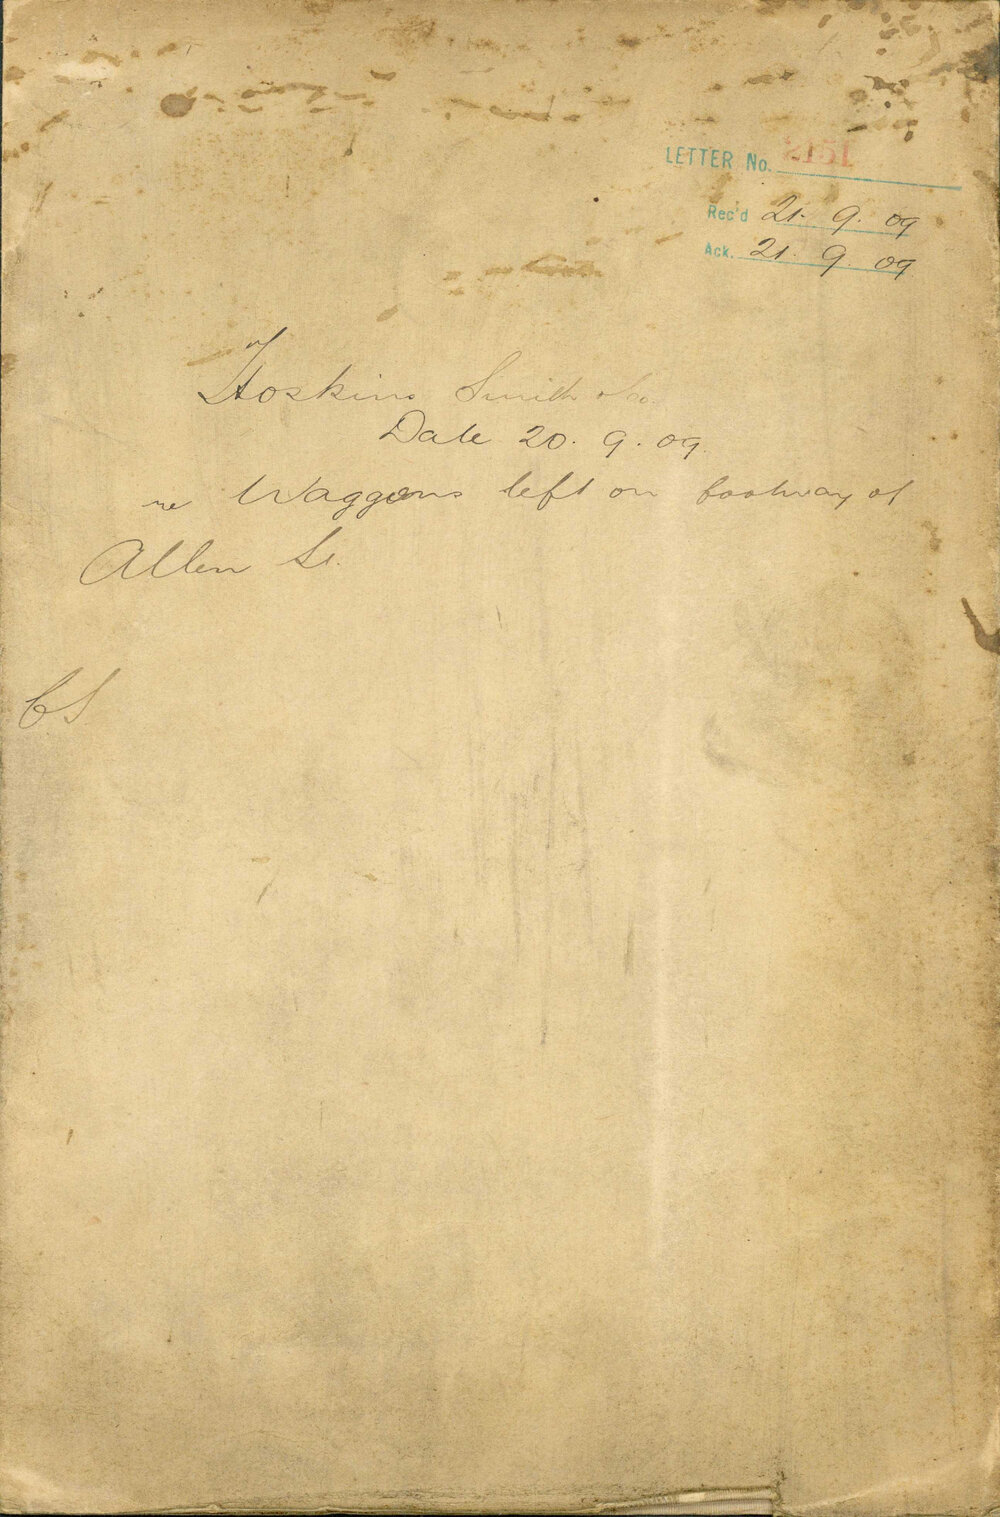 LETTER No. 2151
Rec'd 21. 9. 09
Ack. 21. 9 09
Hoskins Smith & Co.
Date 20. 9. 09.
re Waggons left on footway of
Allen St.
CS